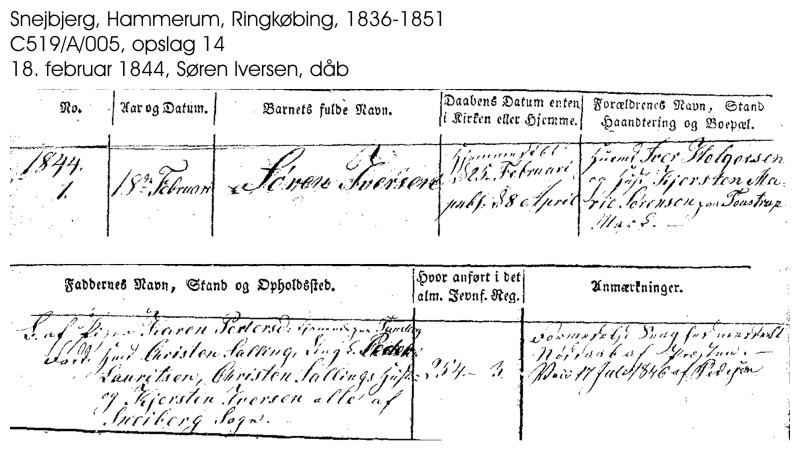 Snejbjerg, Hammerum, Ringkøbing, 1836-1851
C519/A/005, opslag 14
18. februar 1844, Søren Iversen, dåb
No.
Aar og Datum.
Barnets fulde Navn.
Daabens Datum enten
i Kirken eller Hjemme.
Forældrenes Navn, Stand
Haandtering og Boepæl.
1844.
1.
18de Februari
Søren Iversen
Hjemmedøbt
d 25 Februari
publ. d 8 April
Huusmd Iver Holgersen
og Hust. Kjersten Ma-
rie Sørensen paa Tovstrup
Mark. -
Faddernes Navn, Stand og Opholdssted.
Hvor anført i det
alm. Jevnf. Reg.
Anmærkninger.
B. af Pigen Karen Peders
Christen Salling, Peder
Lauritsen, Christen Sallings Hust
og Kjerstin Iversen alle af
Sneiberg Sogn.
254 - 3.
af Præsten. -
17 Juli 1846 af